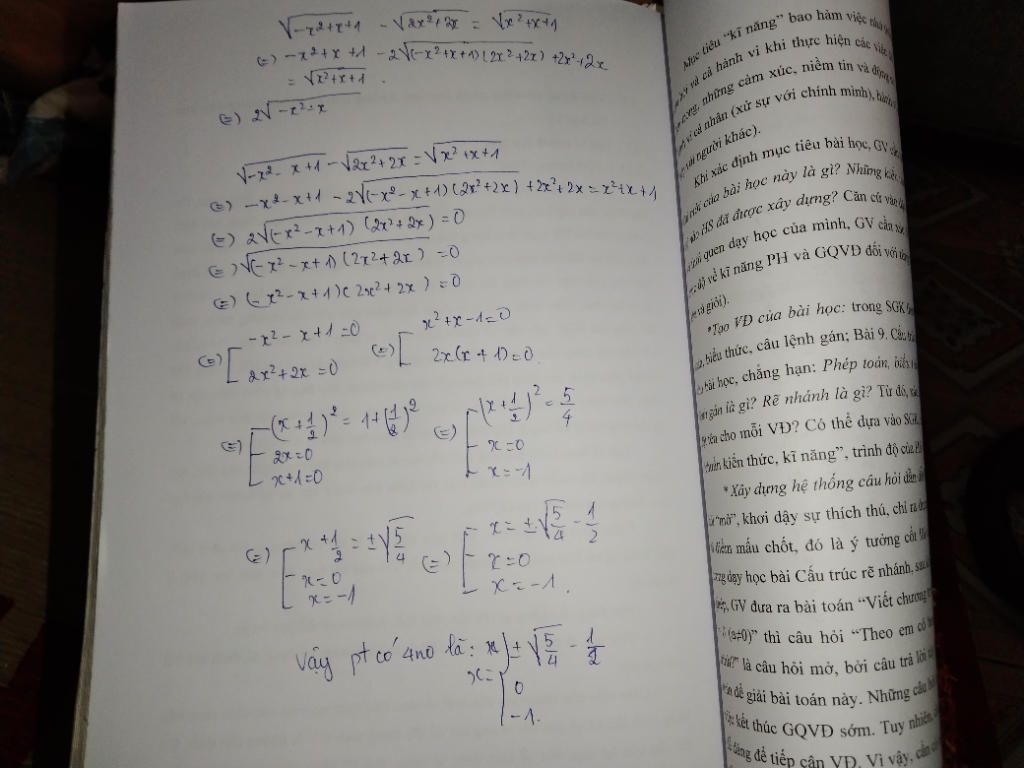 √-x²+x+1 - √2x²+2x = √x²+x+1
(=) -x²+x+1 - 2√(-x²+x+1)(2x²+2x) + 2x²+2x
= √x²+x+1 .
(=) 2√-x²-x
√-x²-x+1 - √2x²+2x = √x²+x+1
(=) -x²-x+1 - 2√(-x²-x+1)(2x²+2x) + 2x²+2x = x²+x+1
(=) 2√(-x²-x+1)(2x²+2x) = 0
(=) √(-x²-x+1)(2x²+2x) = 0
(=) (-x²-x+1)(2x²+2x) = 0
(=) [ -x²-x+1=0 (=) [ x²+x-1=0
2x²+2x=0 2x(x+1)=0
(=) [ (x+1/2)² = 1+(1/2)² (=) [ (x+1/2)² = 5/4
2x=0 x=0
x+1=0 x=-1
(=) [ x+1/2 = ±√5/4 (=) [ x = ±√5/4 - 1/2
x=0 x=0
x=-1 x=-1.
Vậy pt có 4 no là: x ± √5/4 - 1/2
x= 0
-1.
Mục tiêu "kĩ năng" bao hàm việc
và cả hành vi khi thực hiện các việc
những cảm xúc, niềm tin và động
vi cá nhân (xử sự với chính mình), hành
người khác).
Khi xác định mục tiêu bài học, GV
của bài học này là gì? Những
HS đã được xây dựng? Căn cứ
quen dạy học của mình, GV cần
độ về kĩ năng PH và GQVĐ đối với
và giỏi).
*Tạo VĐ của bài học: trong SGK
biểu thức, câu lệnh gán; Bài 9. Cấu
bài học, chẳng hạn: Phép toán,
gán là gì? Rẽ nhánh là gì? Từ đó,
cho mỗi VĐ? Có thể dựa vào SGK,
kiến thức, kĩ năng", trình độ của
*Xây dựng hệ thống câu hỏi dẫn
"mở", khơi dậy sự thích thú, chỉ ra
điểm mấu chốt, đó là ý tưởng cốt
dạy học bài Cấu trúc rẽ nhánh,
GV đưa ra bài toán "Viết chương
(a≠0)" thì câu hỏi "Theo em có
là câu hỏi mở, bởi câu trả lời
để giải bài toán này. Những câu
kết thúc GQVĐ sớm. Tuy nhiên,
dàng để tiếp cận VĐ. Vì vậy, cần